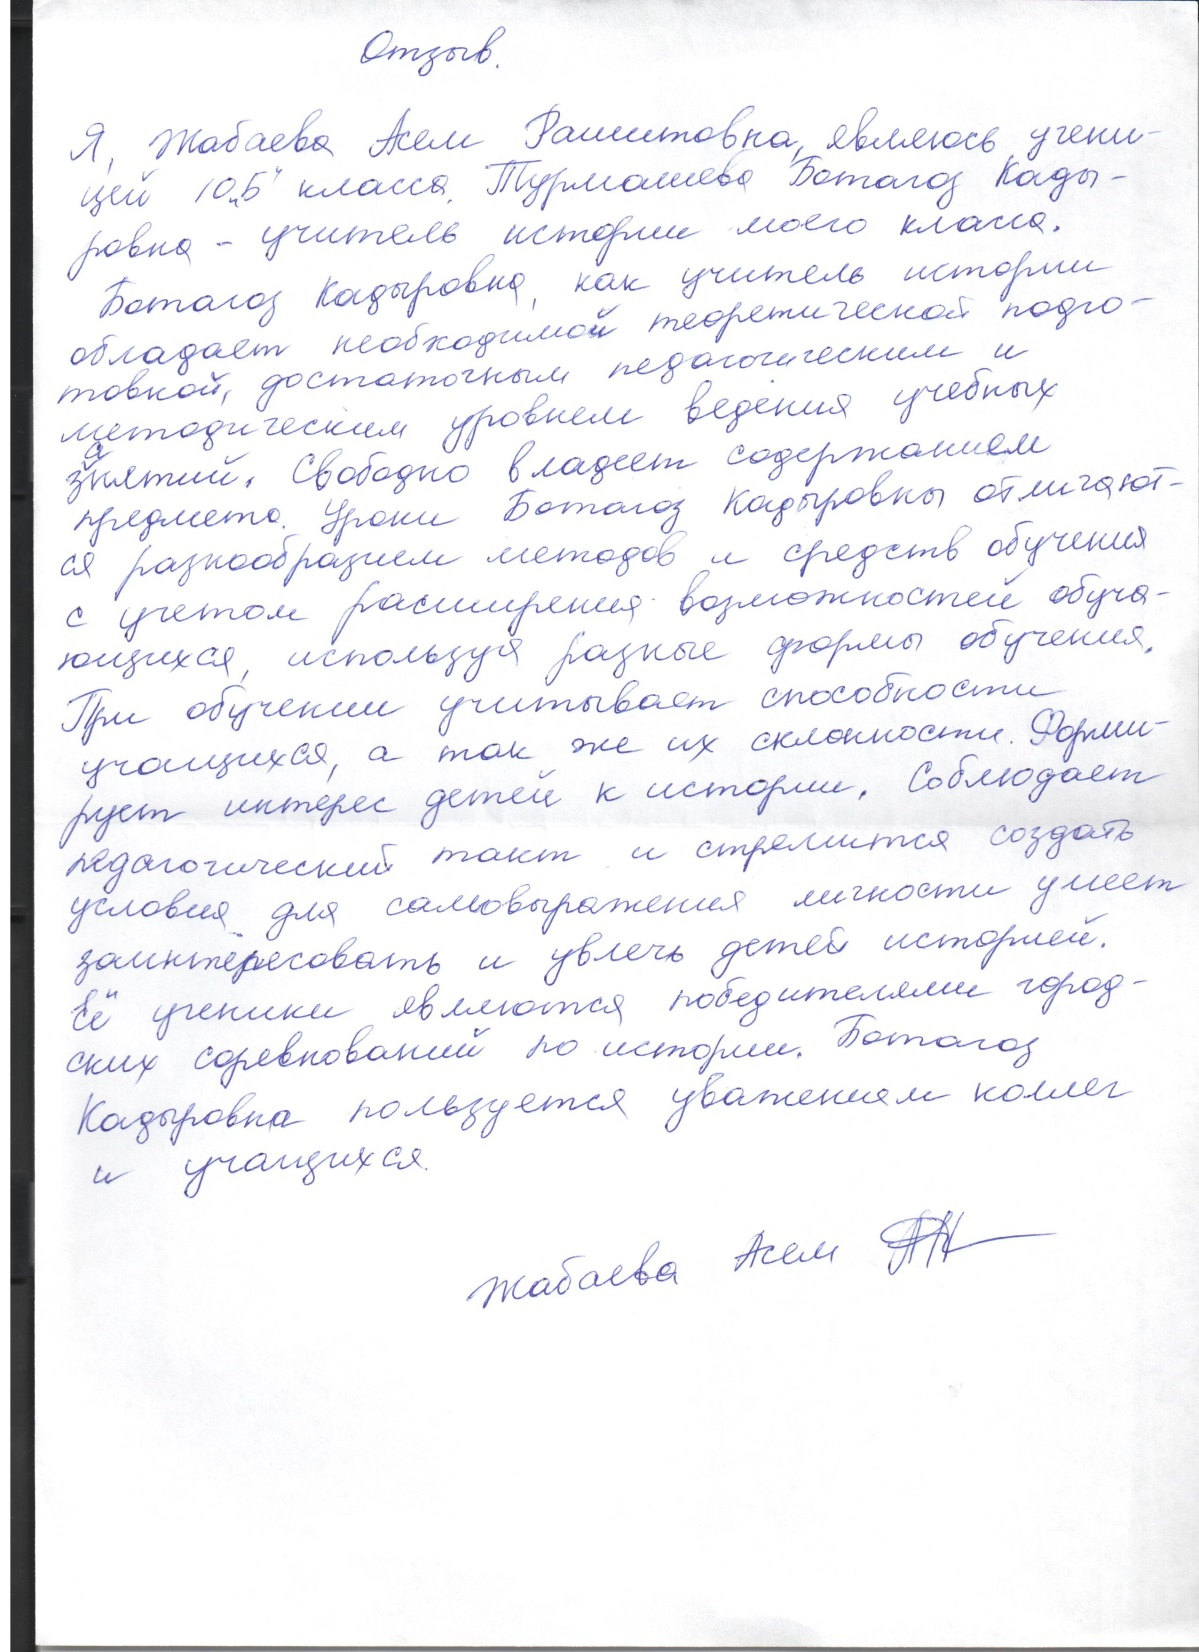 Отзыв.
Я, Жабаева Асем Рашитовна, являюсь учени-
цей 10 „Б" класса. Турмашева Ботагоз Кады-
ровна – учитель истории моего класса.
Ботагоз Кадыровна, как учитель истории
обладает необходимой теоретической подго-
товкой, достаточным педагогическим и
методическим уровнем ведения учебных
занятий. Свободно владеет содержанием
предмета. Уроки Ботагоз Кадыровны отличают-
ся разнообразием методов и средств обучения
с учетом расширения возможностей обуча-
ющихся, используя разные формы обучения.
При обучении учитывает способности
учащихся, а так же их склонности. Форми-
рует интерес детей к истории. Соблюдает
педагогический такт и стремится создать
условия для самовыражения личности умеет
заинтересовать и увлечь детей историей.
Её ученики являются победителями город-
ских соревнований по истории. Ботагоз
Кадыровна пользуется уважением коллег
и учащихся.
Жабаева Асем